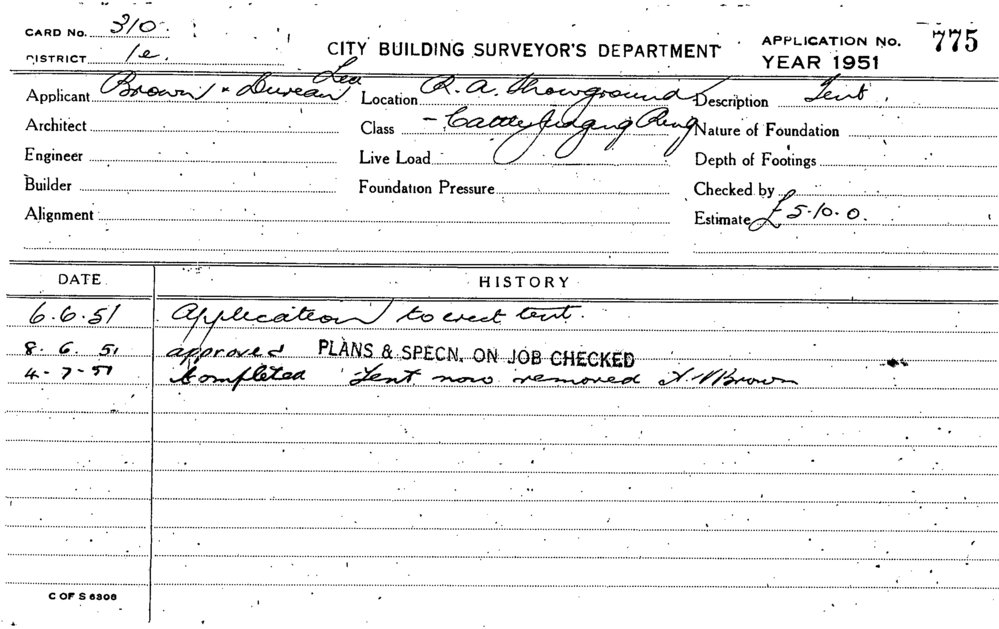 CARD No. 310.
DISTRICT 1e.
CITY BUILDING SURVEYOR'S DEPARTMENT
APPLICATION No. 775
YEAR 1951
Applicant Brown & Dureau Location R. A. Showground Description Tent.
Architect Class - Cattle Judging Ring Nature of Foundation
Engineer Live Load Depth of Footings
Builder Foundation Pressure Checked by
Alignment Estimate £5-10-0.
DATE HISTORY
6.6.51 Application to erect tent.
8.6.51 approved PLANS & SPECN. ON JOB CHECKED
4-7-51 Completed Tent now removed Brown
C OF S 6306